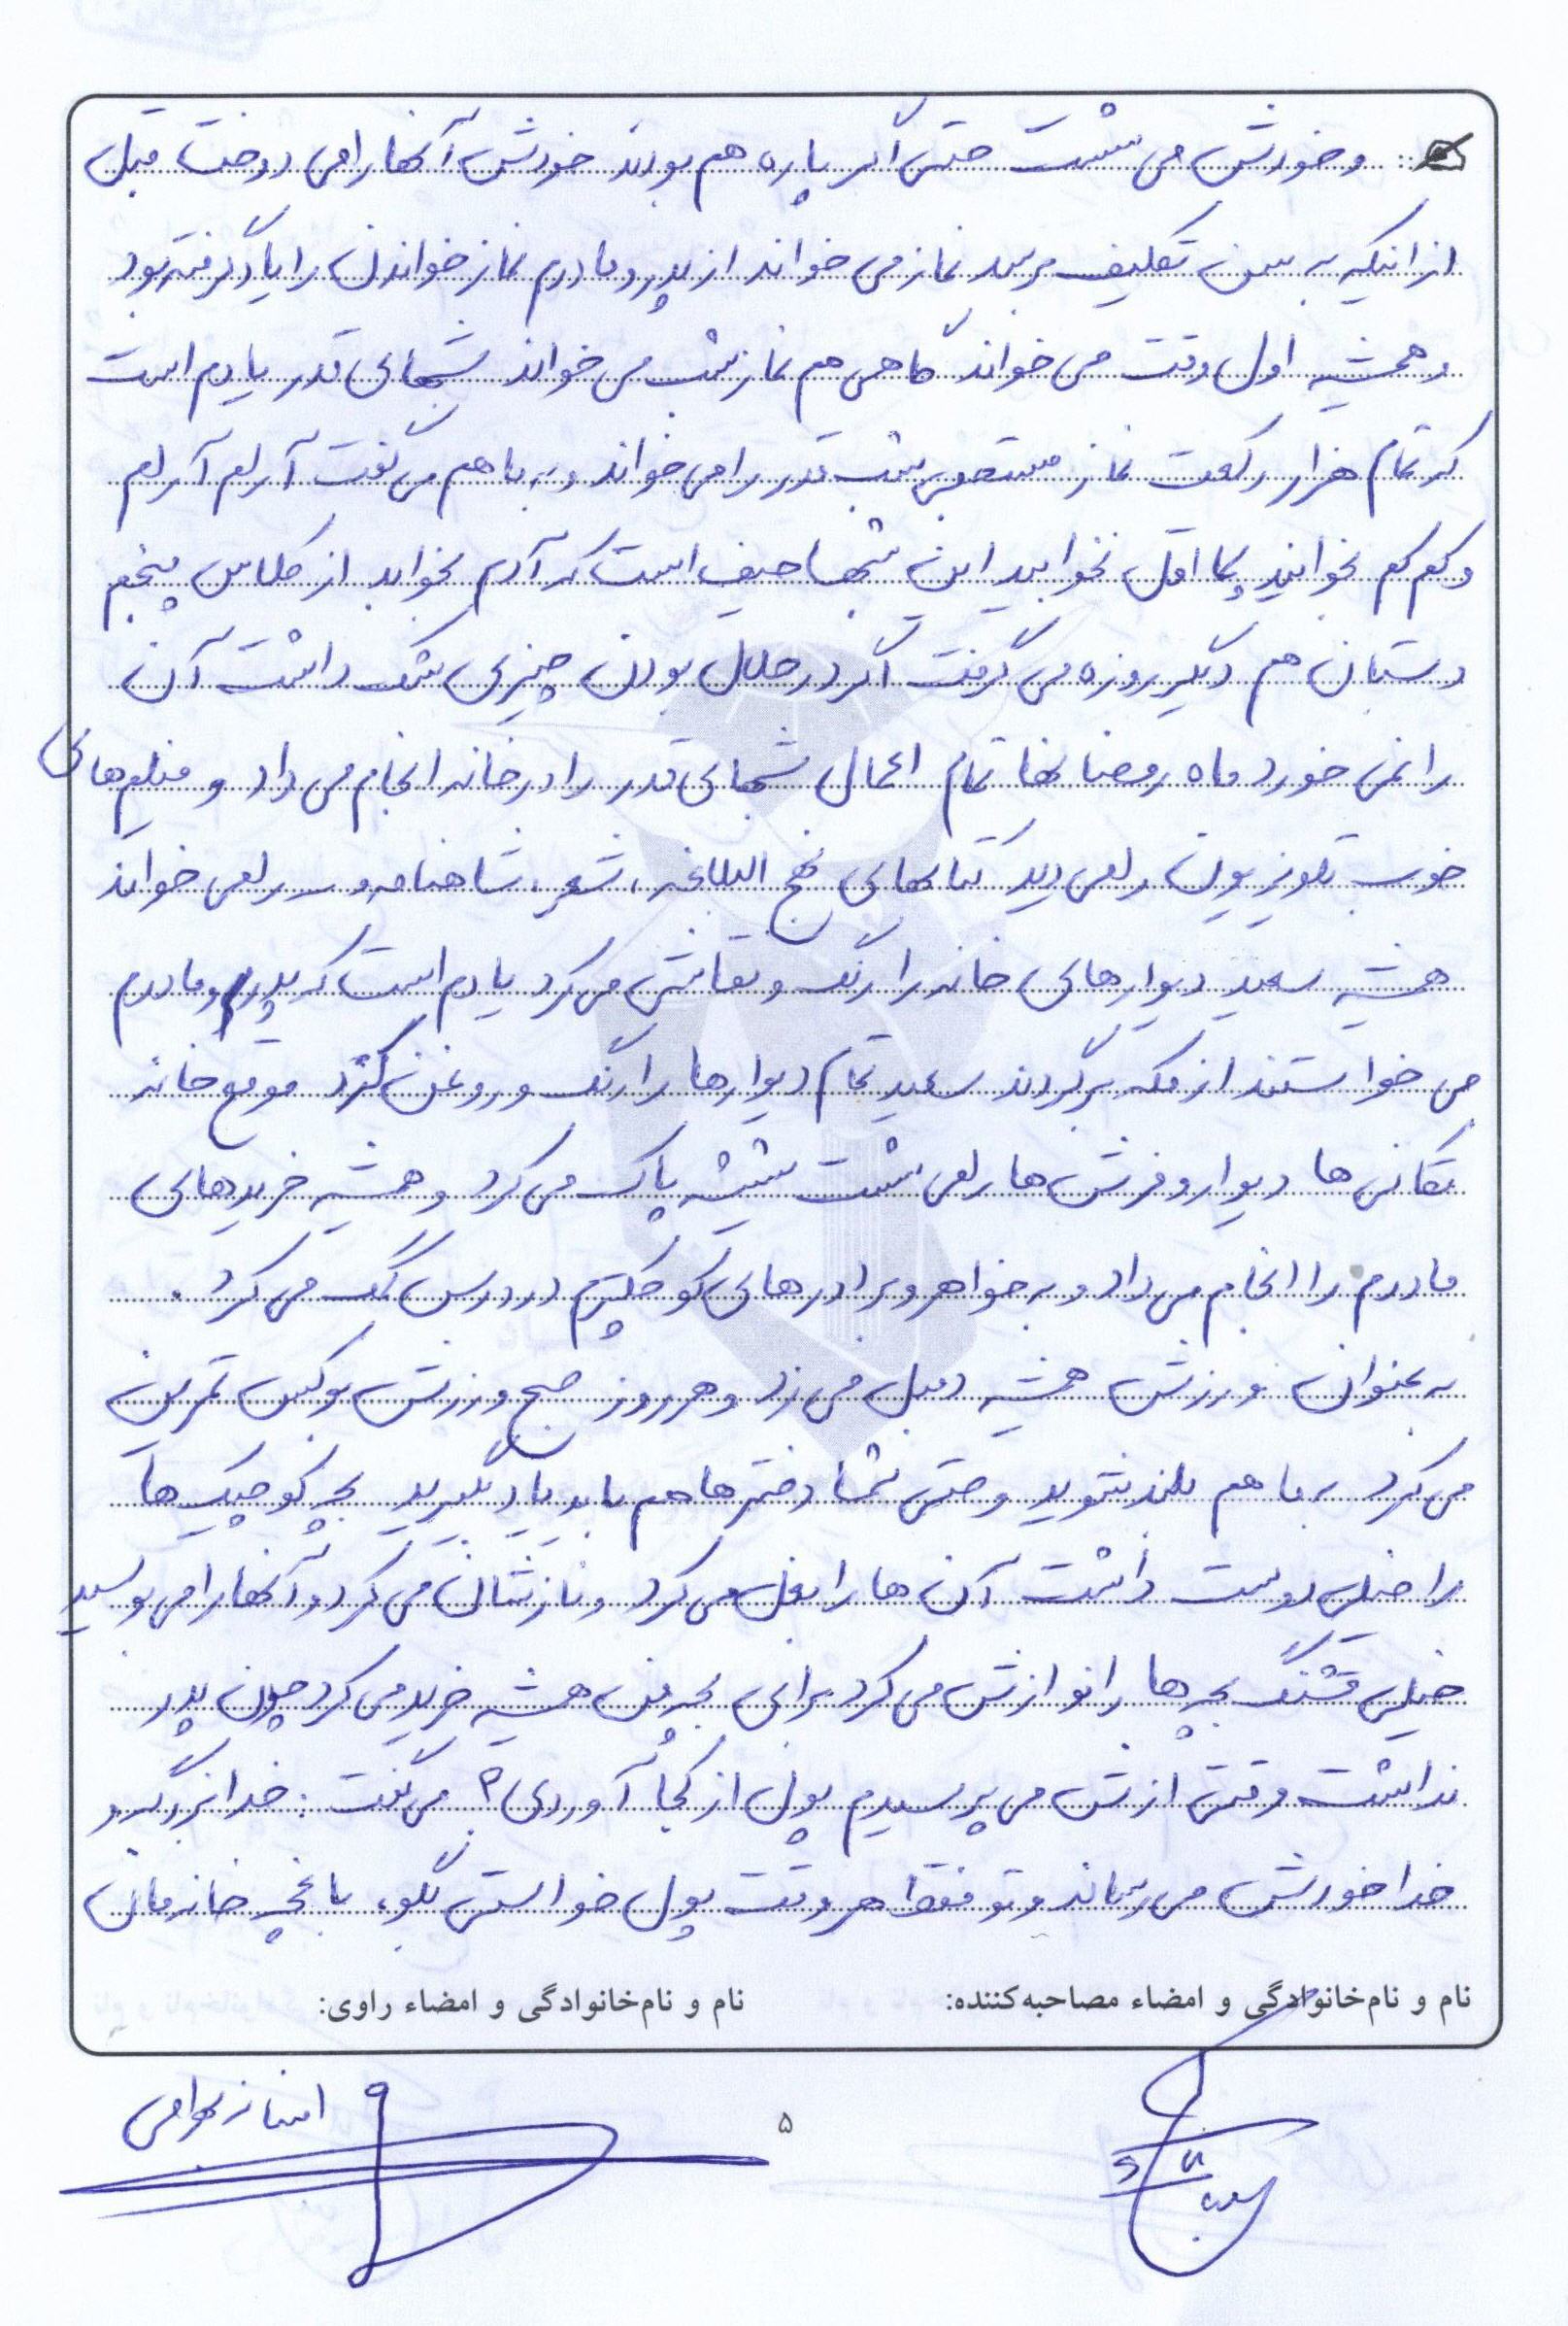 و خودش می شست حتی اگر پاره هم بودند خودش آنها را می دوخت قبل
از اینکه به سن تکلیف برسد نماز می خواند از پدر و مادرم نماز خواندن را یاد گرفته بود
و همیشه اول وقت می خواند گاهی هم نماز شب می خواند شبهای قدر یادم است
که تمام هزار رکعت نماز مستحبی شب قدر را می خواند و به ما هم می گفت آرام آرام
و کم کم بخوانید لااقل نخوابید این شبها حیف است که آدم بخوابد از کلاس پنجم
دبستان هم دیگر روزه می گرفت اگر در حلال بودن چیزی شک داشت آن
را نمی خورد ماه رمضانها تمام اعمال شبهای قدر را در خانه انجام می داد و فیلم های
خوب تلویزیون را می دید کتابهای نهج البلاغه، شعر، شاهنامه و ... را می خواند
همیشه سعید دیوارهای خانه را رنگ و نقاشی می کرد یادم است که پدر و مادرم
می خواستند از مکه برگردند سعید تمام دیوارها را رنگ و روغن کرد موقع خانه
تکانی ها دیوار و فرش ها را می شست شیشه پاک می کرد و همیشه خریدهای
مادرم را انجام می داد و به خواهر و برادرهای کوچکترم در درس کمک می کرد.
به عنوان ورزش همیشه دمبل می زد و هر روز صبح ورزش بوکس تمرین
می کرد به ما هم بلند شوید و حتی شما دخترها هم باید یاد بگیرید بچه کوچیک ها
را خیلی دوست داشت آن ها را بغل می کرد و نازشان می کرد و آنها را می بوسید
خیلی قشنگ بچه ها را نوازش می کرد برای بچه من همیشه خرید می کرد چون پدر
نداشت وقتی ازش می پرسیدم پول از کجا آوردی؟ می گفت: خدا بزرگ و
خدا خودش می رساند و تو فقط هر وقت پول خواستی بگو، باغچه خانه مان
نام و نام‌خانوادگی و امضاء مصاحبه‌کننده: نام و نام‌خانوادگی و امضاء راوی:
۵